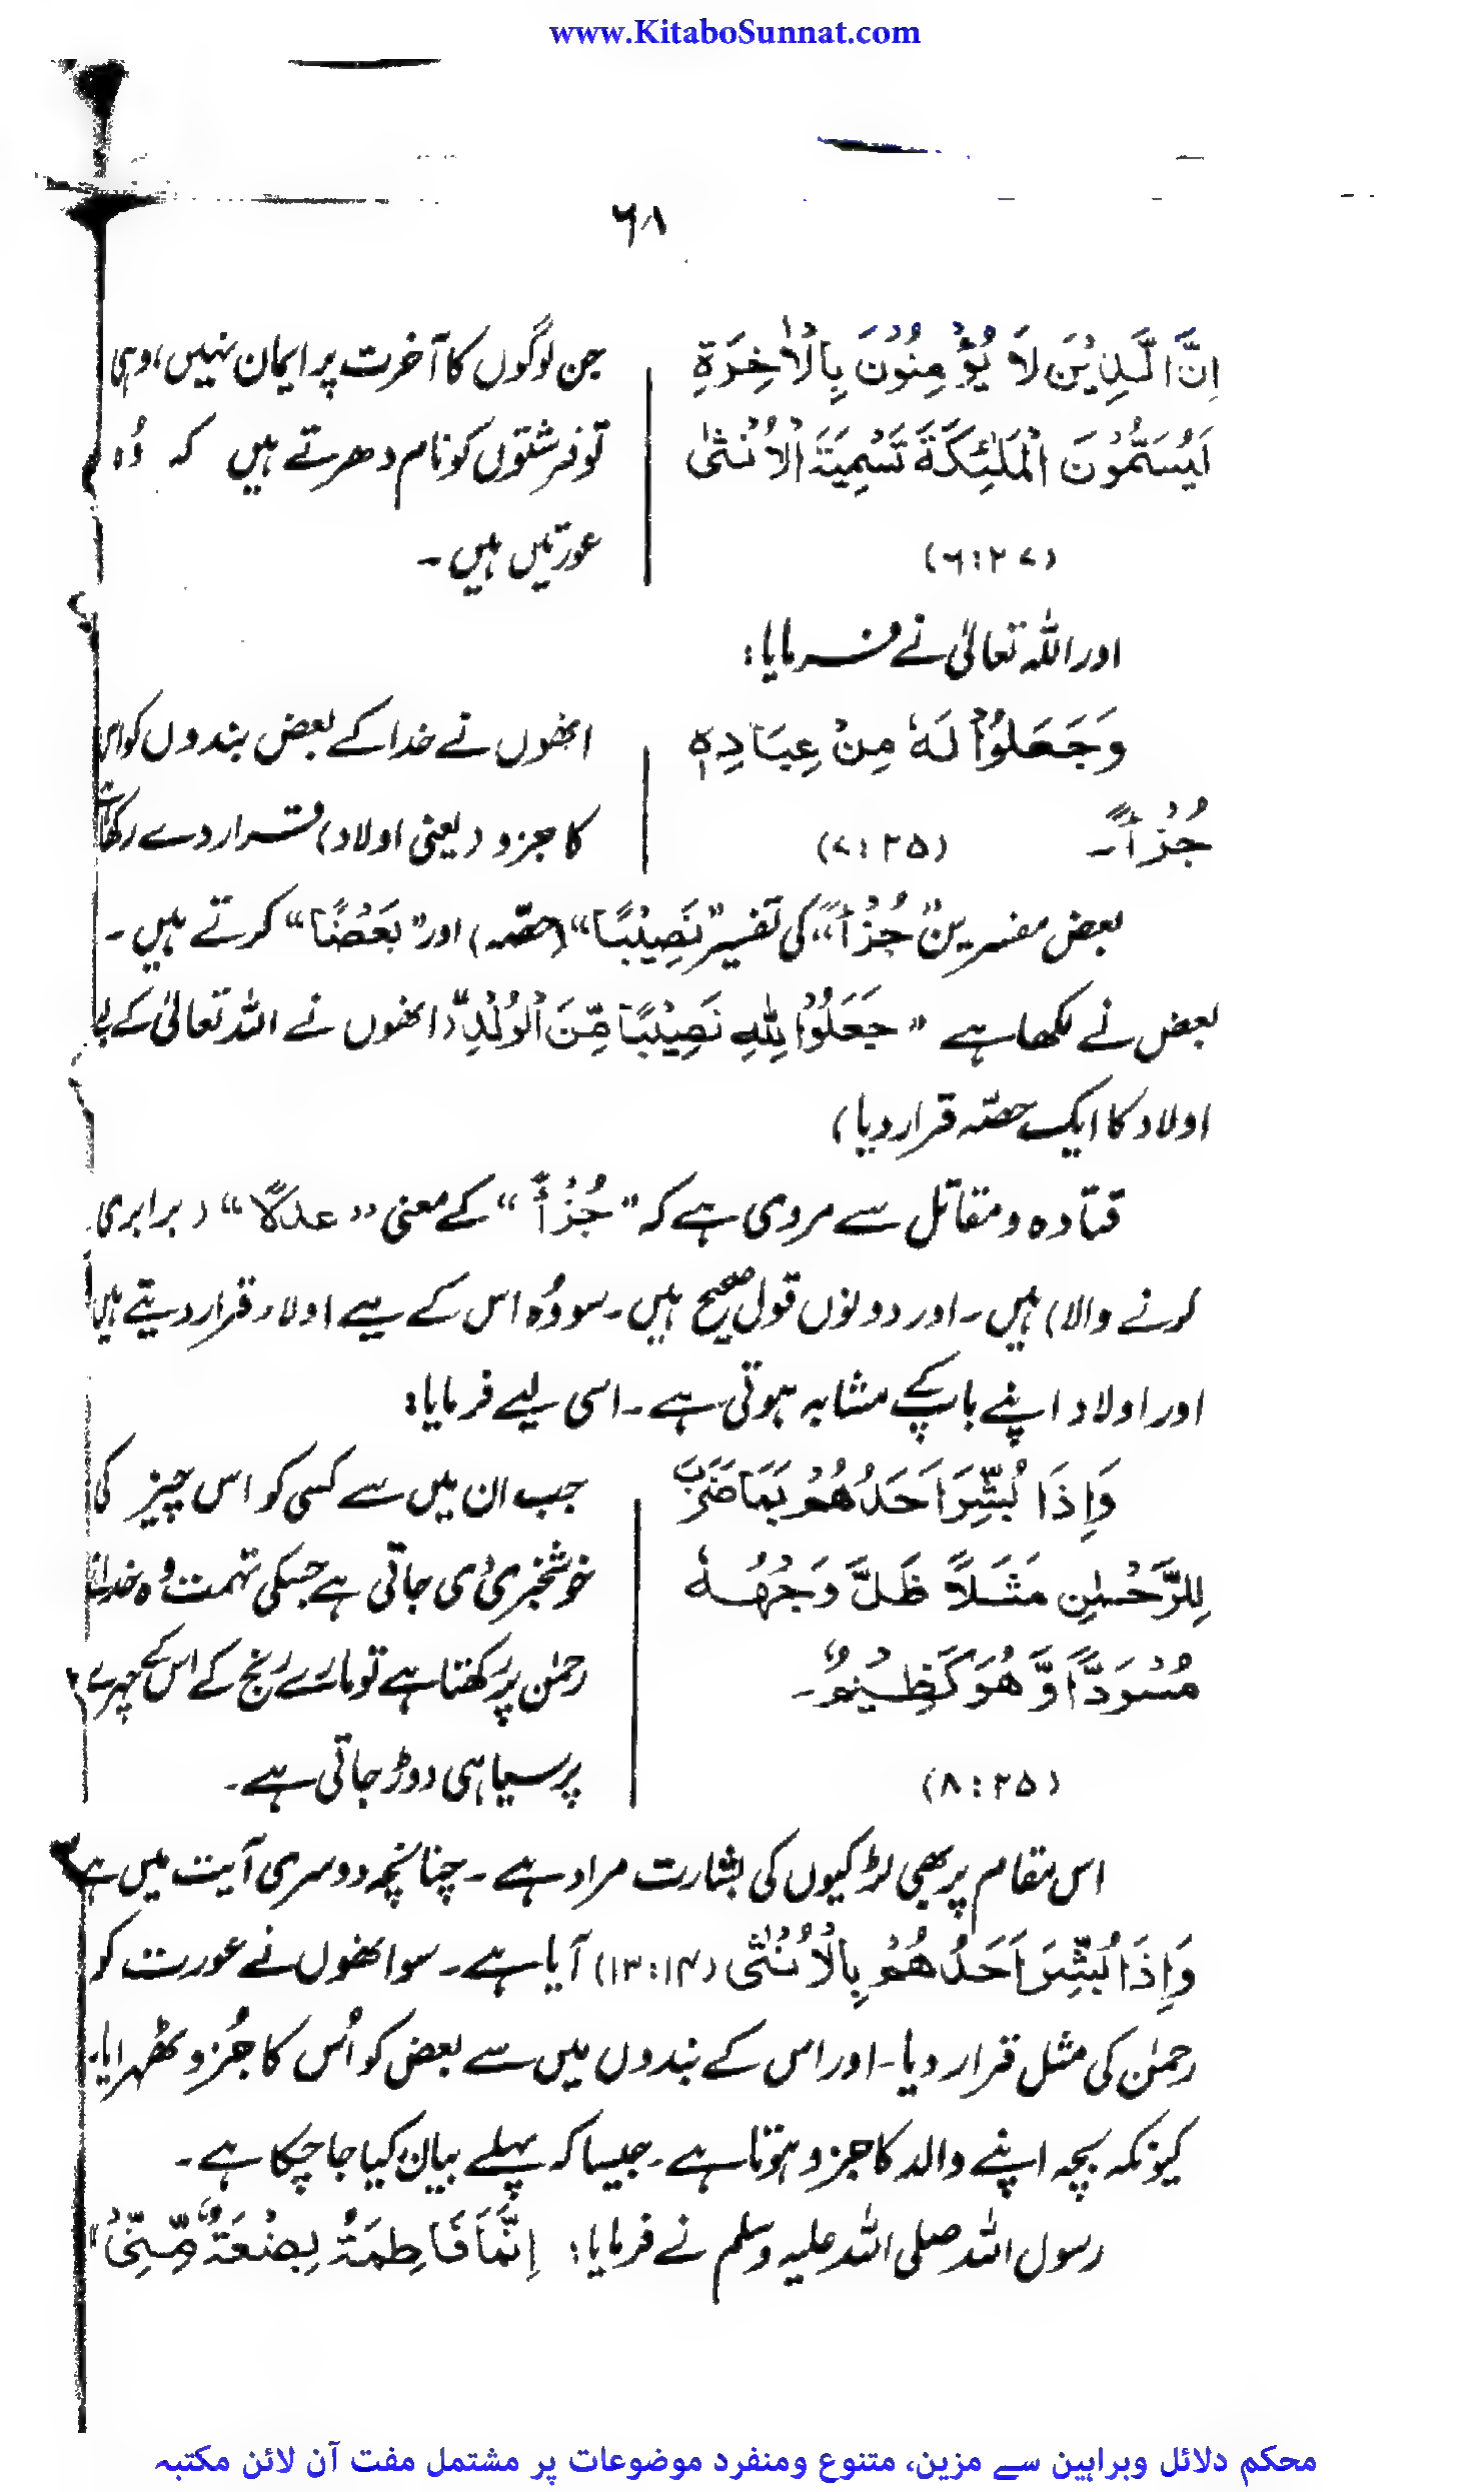 www.KitaboSunnat.com
۶۸
اِنَّ الَّذِيْنَ لَا يُؤْمِنُوْنَ بِالْاٰخِرَةِ
لَيُسَمُّوْنَ الْمَلٰٓئِكَةَ تَسْمِيَةَ الْاُنْثٰى
(۲۷ : ۶)
جن لوگوں کا آخرت پر ایمان نہیں، وہی
تو فرشتوں کو نام دھرتے ہیں کہ وُہ
عورتیں ہیں ۔
اور اللہ تعالیٰ نے فرمایا:
وَجَعَلُوْا لَهٗ مِنْ عِبَادِهٖ
جُزْءًا۔ (۲۵ : ۷)
انھوں نے خدا کے بعض بندوں کو اس
کا جزو (یعنی اولاد) قرار دے رکھا
بعض مفسرین "جُزْءًا" کی تفسیر "نَصِيْبًا" (حصّہ) اور "بَعْضًا" کرتے ہیں ۔
بعض نے لکھا ہے "جَعَلُوْا لِلّٰهِ نَصِيْبًا مِّنَ الْوَلَدِ" (انھوں نے اللہ تعالیٰ کے
اولاد کا ایک حصّہ قرار دیا)
قتادہ و مقاتل سے مروی ہے کہ "جُزْءًا" کے معنی "عدلًا" (برابری
کرنے والا) ہیں ۔ اور دونوں قول صحیح ہیں ۔ سو وُہ اس کے لیے اولاد قرار دیتے ہیں
اور اولاد اپنے باپ کے مشابہ ہوتی ہے ۔ اسی لیے فرمایا:
وَاِذَا بُشِّرَ اَحَدُهُمْ بِمَا ضَرَبَ
لِلرَّحْمٰنِ مَثَلًا ظَلَّ وَجْهُهٗ
مُسْوَدًّا وَّهُوَ كَظِيْمٌ۔
(۲۵ : ۸)
جب ان میں سے کسی کو اس چیز کی
خوشخبری دی جاتی ہے جسکی تہمت وُہ خدائے
رحمٰن پر رکھتا ہے تو مارے رنج کے اس کے چہرے
پر سیاہی دوڑ جاتی ہے ۔
اس مقام پر بھی لڑکیوں کی بشارت مراد ہے ۔ چنانچہ دوسری آیت میں ہے
وَاِذَا بُشِّرَ اَحَدُهُمْ بِالْاُنْثٰى (۱۴ : ۱۳) آیا ہے ۔ سو انھوں نے عورت کو
رحمٰن کی مثل قرار دیا ۔ اور اس کے بندوں میں سے بعض کو اُس کا جُزو ٹھہرایا۔
کیونکہ بچہ اپنے والد کا جزو ہوتا ہے ۔ جیسا کہ پہلے بیان کیا جا چکا ہے ۔
رسول اللہ صلی اللہ علیہ وسلم نے فرمایا: اِنَّمَا فَاطِمَةُ بِضْعَةٌ مِّنِّيْ"
محکم دلائل وبراہین سے مزین، متنوع ومنفرد موضوعات پر مشتمل مفت آن لائن مکتبہ